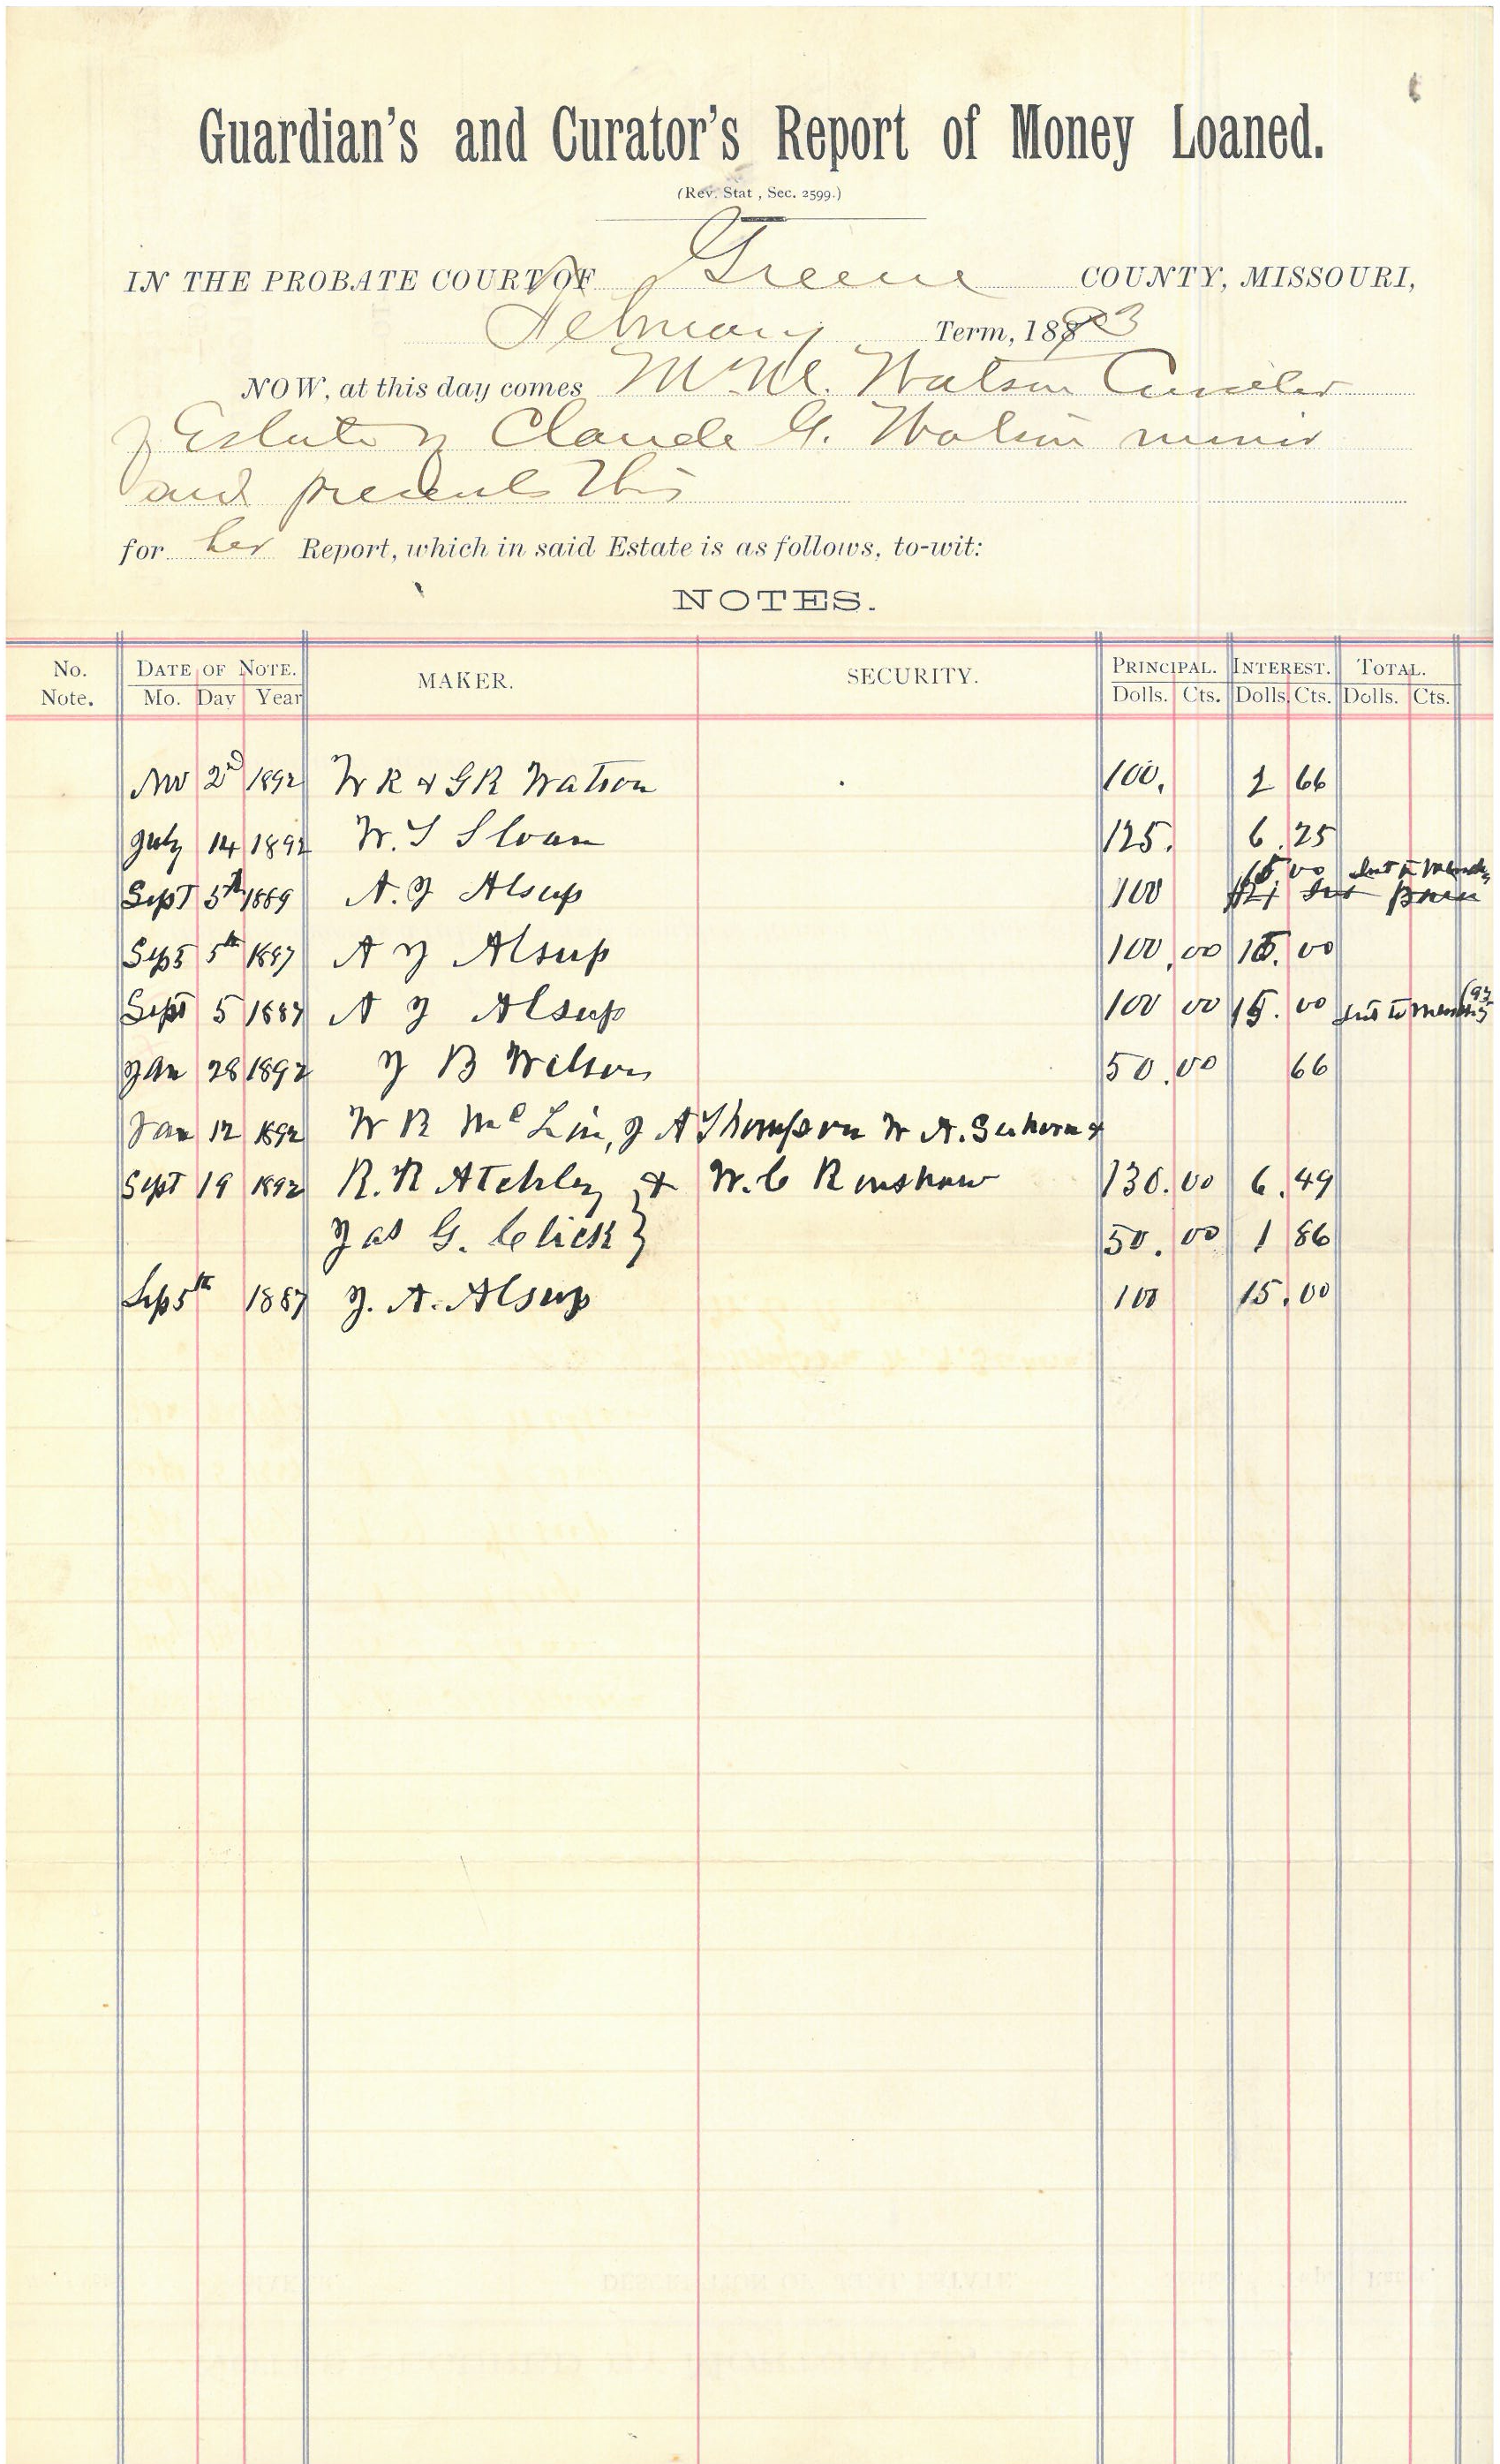 Guardian's and Curator's Report of Money Loaned.
(Rev. Stat, Sec. 2599.)
IN THE PROBATE COURT OF Greene COUNTY, MISSOURI,
February Term, 1893
NOW, at this day comes M. M. Watson
of Estate of Claude G. Watson minor
and presents this
for her Report, which in said Estate is as follows, to-wit:
NOTES.
No. Note. DATE OF NOTE. Mo. Day Year MAKER. SECURITY. PRINCIPAL. Dolls. Cts. INTEREST. Dolls. Cts. TOTAL. Dolls. Cts.
Nov 2d 1892 W R & G R Watson 100. 2 66
July 14 1892 W. S Sloan 125. 6.25
Sept 5th 1889 A. J Alsup 100 15 00
Sept 5th 1887 A J Alsup 100.00 15.00
Sept 5 1887 A J Alsup 100 00 15.00
Jan 28 1892 J B Wilson 50.00 66
Jan 12 1892 W R Mc Lin, J A Thompson W A.
Sept 19 1892 R. R Atchley & W. C Renshaw 130.00 6.49
Jas G. Click } 50.00 1 86
Sep 5th 1887 J. A. Alsup 100 15.00